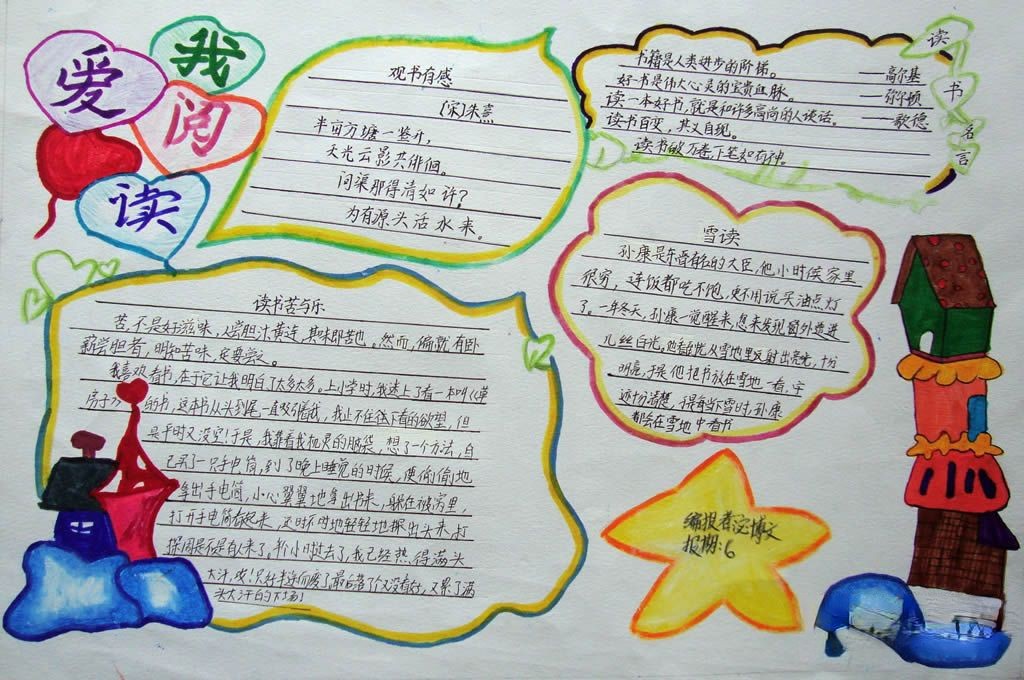 我
爱
阅
读
观书有感
(宋)朱熹
半亩方塘一鉴开,
天光云影共徘徊。
问渠那得清如许?
为有源头活水来。
书籍是人类进步的阶梯。——高尔基
好书是伟大心灵的宝贵血脉。——弥尔顿
读一本好书,就是和许多高尚的人谈话。——歌德
读书百变,其义自现。
读书破万卷,下笔如有神。
读
书
名
言
雪读
孙康是东晋有名的大臣,他小时候家里
很穷,连饭都吃不饱,更不用说买油点灯
了。一年冬天,孙康一觉醒来,忽来发现窗外透进
几丝白光。他看见从雪地里反射出亮光,十分
明亮,于是他把书放在雪地一看,字
还十分清楚,
都会在雪地中看书
读书苦与乐
苦,不是好滋味,人尝胆汁黄连,其味即苦也。然而,偏就有卧
薪尝胆者,明知苦味,
我喜欢看书,在于它让我明白了太多太多。上小学时,我迷上了看一本叫《草
房子》的书,这本书从头到尾一直吸引着我,我止不住往下看的欲望,但
是平时又没空!于是,我靠着我机灵的脑袋,想了一个方法,自
己买了一只手电筒,到了晚上睡觉的时候,便偷偷地
拿出手电筒,小心翼翼地拿出书来,躲在被窝里,
打开手电筒看起来,还时不时地轻轻地探出头来,打
探周是不是有人来了,我已经热得满头
大汗,
头大汗的下场!
编报者:
报期:6